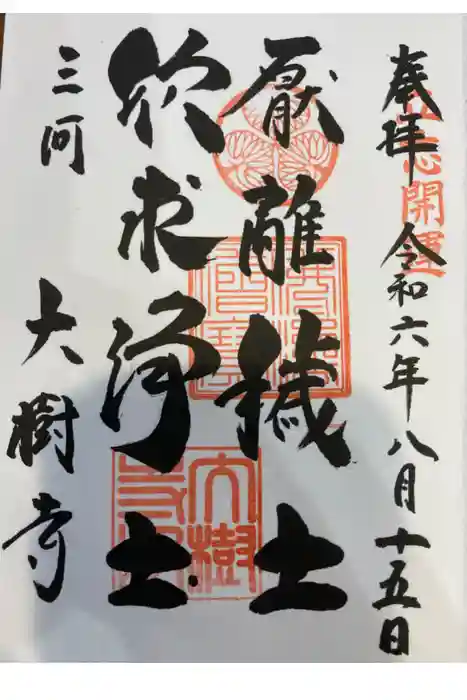 奉拝 令和六年八月十五日
厭離穢土
欣求浄土
三河 大樹寺
開運
大樹